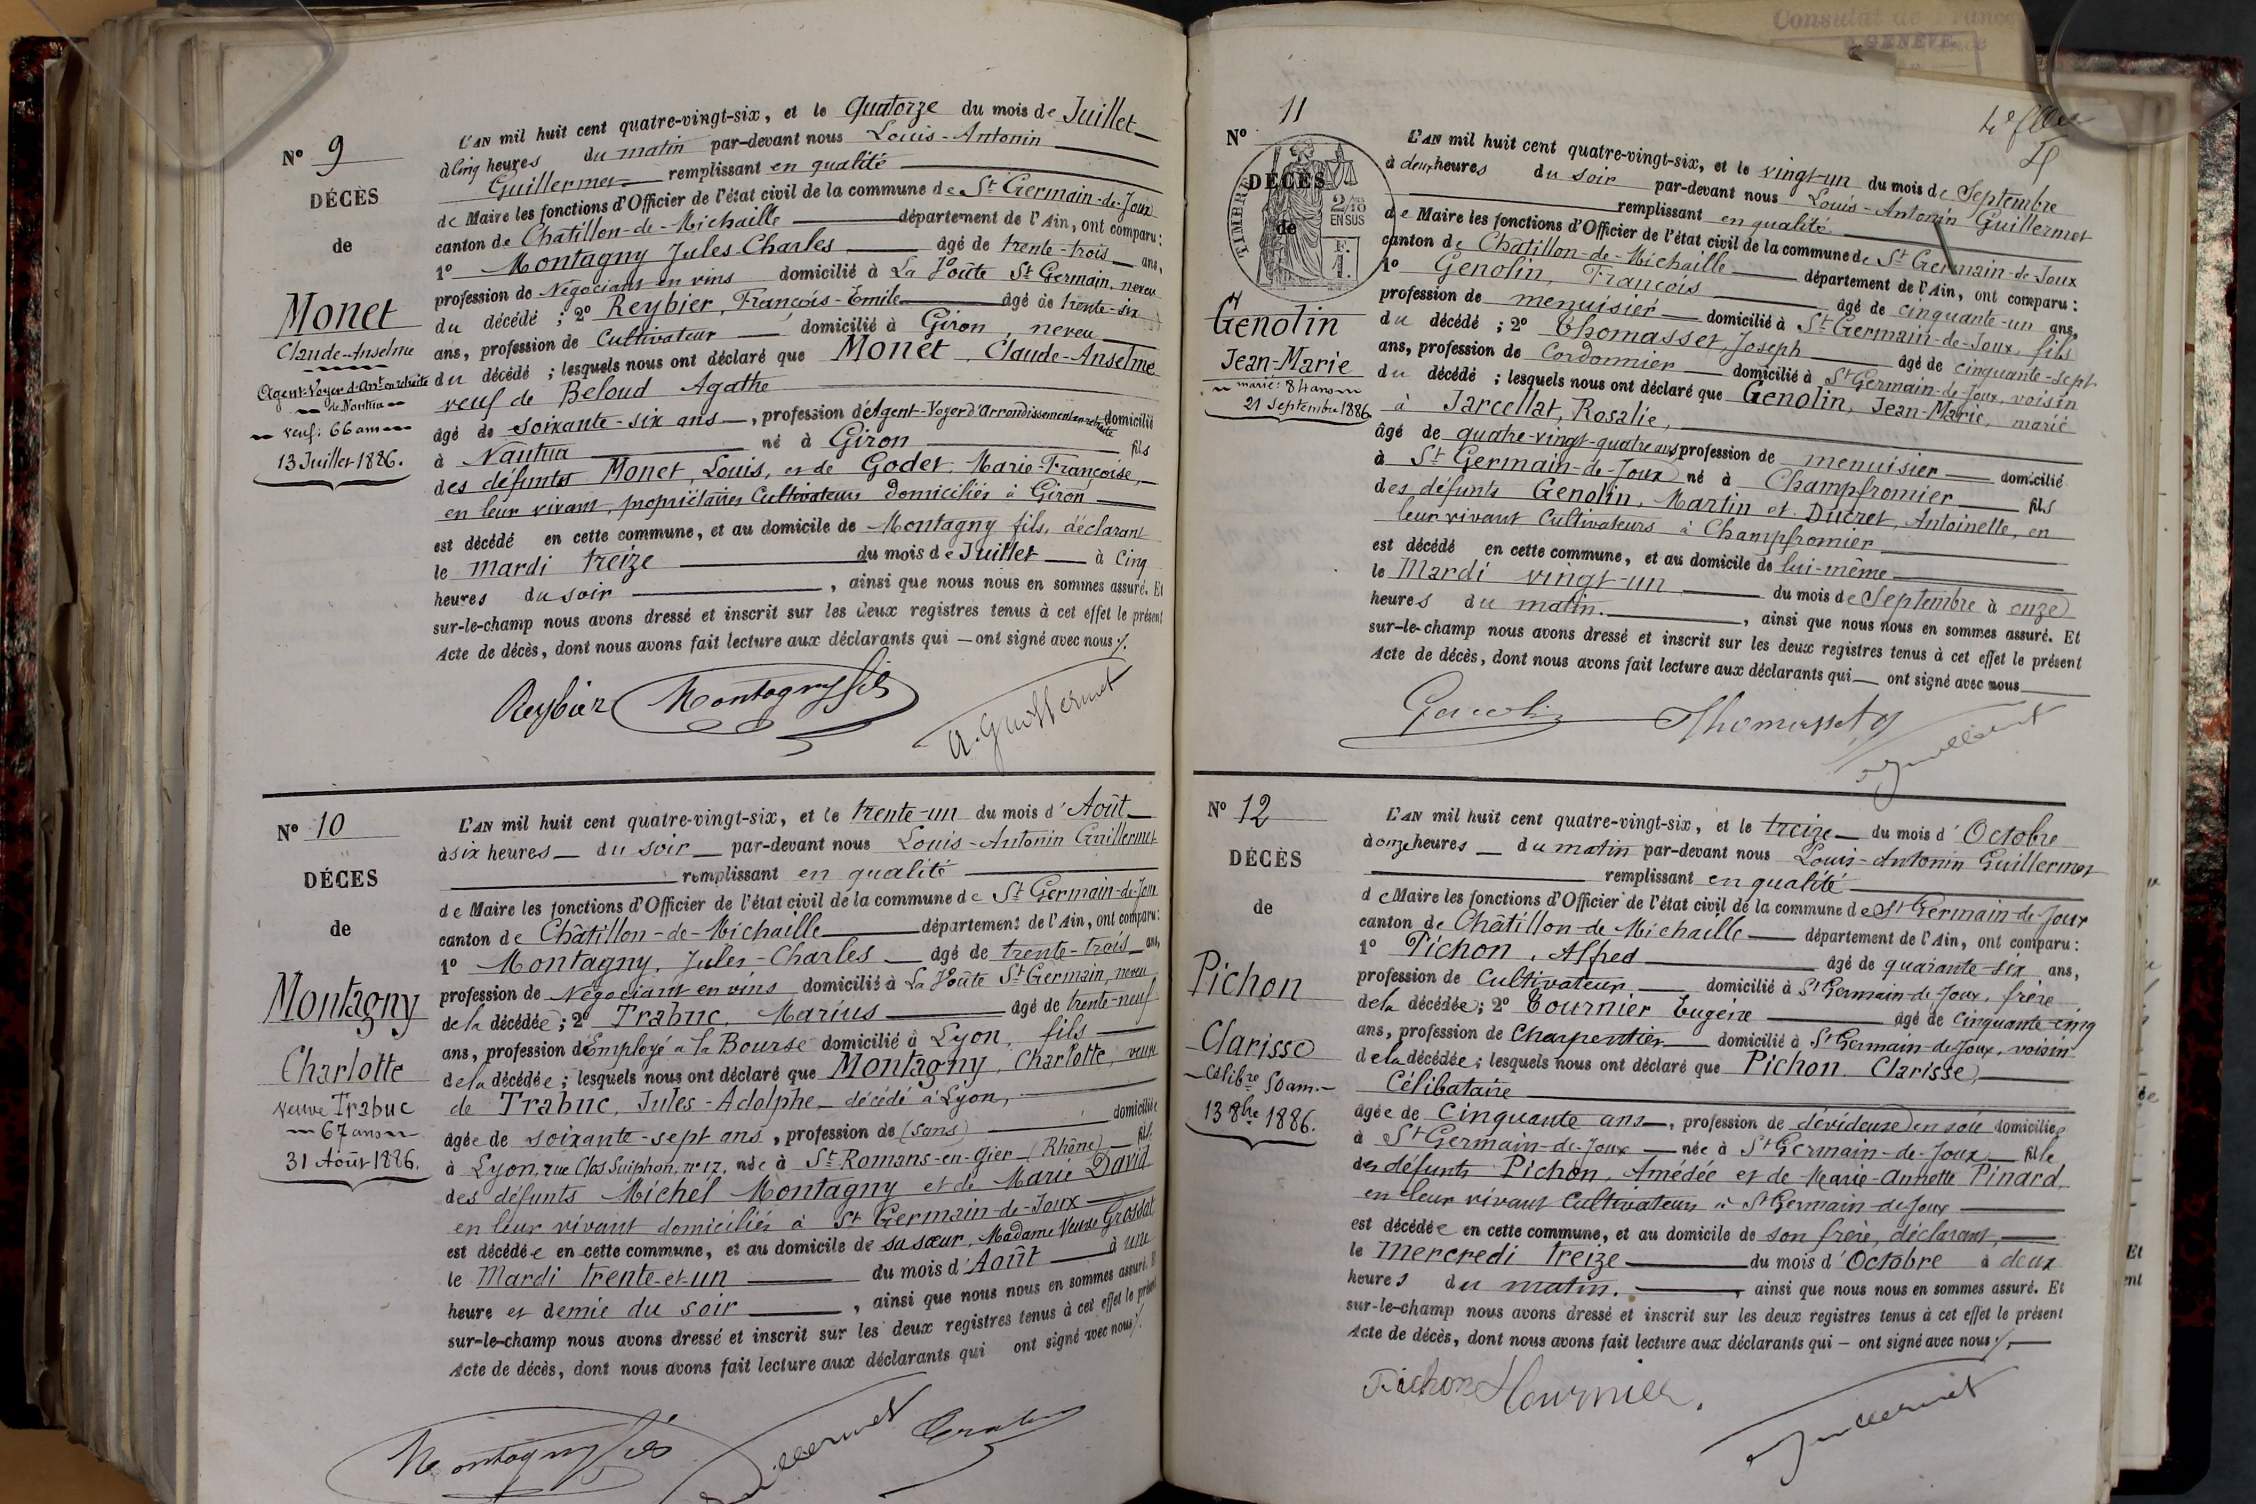 Nº 9
DÉCÈS
de
Monet
Claude-Anselme
Agent-Voyer d'Arrt en retraite
de Nantua
veuf: 66 ans
13 Juillet 1886.
L'AN mil huit cent quatre-vingt-six, et le quatorze du mois de Juillet
à cinq heures du matin par-devant nous Louis-Antonin
Guillermet remplissant en qualité
de Maire les fonctions d'Officier de l'état civil de la commune de St Germain-de-Joux
canton de Chatillon-de-Michaille département de l'Ain, ont comparu:
1º Montagny Jules-Charles âgé de trente-trois ans,
profession de Négociant en vins domicilié à La Voûte St Germain, neveu
du décédé ; 2º Reybier, François-Emile âgé de trente-six
ans, profession de Cultivateur domicilié à Giron, neveu
du décédé ; lesquels nous ont déclaré que Monet, Claude-Anselme
veuf de Beloud Agathe
âgé de soixante-six ans, profession d'Agent-Voyer d'Arrondissement en retraite domicilié
à Nantua né à Giron fils
des défunts Monet, Louis, et de Godet, Marie-Françoise,
en leur vivant, propriétaires Cultivateurs domiciliés à Giron
est décédé en cette commune, et au domicile de Montagny fils, déclarant
le mardi treize du mois de Juillet à Cinq
heures du soir, ainsi que nous nous en sommes assuré. Et
sur-le-champ nous avons dressé et inscrit sur les deux registres tenus à cet effet le présent
Acte de décès, dont nous avons fait lecture aux déclarants qui — ont signé avec nous /.
Reybier Montagny fils
A. Guillermet
Nº 10
DÉCES
de
Montagny
Charlotte
veuve Trabuc
67 ans
31 Août 1886.
L'AN mil huit cent quatre-vingt-six, et le trente-un du mois d'Août
à six heures du soir par-devant nous Louis-Antonin Guillermet
remplissant en qualité
de Maire les fonctions d'Officier de l'état civil de la commune de St Germain-de-Joux
canton de Châtillon-de-Michaille département de l'Ain, ont comparu:
1º Montagny, Jules-Charles âgé de trente-trois ans,
profession de Négociant en vins domicilié à La Voûte St Germain, neveu
de la décédée ; 2º Trabuc, Marius âgé de trente-neuf
ans, profession d'Employé à la Bourse domicilié à Lyon, fils
de la décédée ; lesquels nous ont déclaré que Montagny, Charlotte, veuve
de Trabuc, Jules-Adolphe décédé à Lyon,
âgée de soixante-sept ans, profession de (sans) domiciliée
à Lyon, rue Clos Suiphon, nº 17, née à St Romans-en-Gier (Rhône) fille
des défunts Michel Montagny et de Marie David
en leur vivant domiciliés à St Germain-de-Joux
est décédée en cette commune, et au domicile de sa sœur, Madame Veuve Grossat
le Mardi trente-et-un du mois d'Août à une
heure et demie du soir, ainsi que nous nous en sommes assuré. Et
sur-le-champ nous avons dressé et inscrit sur les deux registres tenus à cet effet le présent
Acte de décès, dont nous avons fait lecture aux déclarants qui ont signé avec nous /.
Montagny fils Guillermet Trabuc
Consulat de France
à GENÈVE
Nº 11
DÉCÈS
de
TIMBRE
2/10
EN SUS
Genolin
Jean-Marie
marié: 84 ans
21 Septembre 1886
L'AN mil huit cent quatre-vingt-six, et le vingt-un du mois de Septembre
à deux heures du soir par-devant nous Louis-Antonin Guillermet
remplissant en qualité
de Maire les fonctions d'Officier de l'état civil de la commune de St Germain-de-Joux
canton de Châtillon-de-Michaille département de l'Ain, ont comparu :
1º Genolin, François âgé de cinquante-un ans,
profession de menuisier domicilié à St Germain-de-Joux, fils
du décédé ; 2º Thomasset, Joseph âgé de cinquante-sept
ans, profession de Cordonnier domicilié à St Germain-de-Joux, voisin
du décédé ; lesquels nous ont déclaré que Genolin, Jean-Marie, marié
à Jarcellat, Rosalie,
âgé de quatre-vingt-quatre ans profession de menuisier domicilié
à St Germain-de-Joux né à Champfromier fils
des défunts Genolin, Martin et Ducret, Antoinette, en
leur vivant Cultivateurs à Champfromier
est décédé en cette commune, et au domicile de lui-même
le Mardi vingt-un du mois de Septembre à onze
heures du matin., ainsi que nous nous en sommes assuré. Et
sur-le-champ nous avons dressé et inscrit sur les deux registres tenus à cet effet le présent
Acte de décès, dont nous avons fait lecture aux déclarants qui — ont signé avec nous
Genolin Thomasset J
Guillermet
Nº 12
DÉCÈS
de
Pichon
Clarisse
Célibre 50 ans.
13 8bre 1886.
L'AN mil huit cent quatre-vingt-six, et le treize du mois d'Octobre
à onze heures du matin par-devant nous Louis-Antonin Guillermet
remplissant en qualité
de Maire les fonctions d'Officier de l'état civil de la commune de St Germain-de-Joux
canton de Châtillon-de-Michaille département de l'Ain, ont comparu :
1º Pichon, Alfred âgé de quarante-six ans,
profession de Cultivateur domicilié à St Germain-de-Joux, frère
de la décédée ; 2º Tournier Eugène âgé de Cinquante-cinq
ans, profession de Charpentier domicilié à St Germain-de-Joux, voisin
de la décédée ; lesquels nous ont déclaré que Pichon, Clarisse,
Célibataire
âgée de Cinquante ans, profession de dévideuse en soie domiciliée
à St Germain-de-Joux née à St Germain-de-Joux fille
des défunts Pichon, Amédée et de Marie-Annette Pinard,
en leur vivant Cultivateurs à St Germain-de-Joux
est décédée en cette commune, et au domicile de son frère, déclarant,
le Mercredi treize du mois d'Octobre à deux
heures du matin., ainsi que nous nous en sommes assuré. Et
sur-le-champ nous avons dressé et inscrit sur les deux registres tenus à cet effet le présent
Acte de décès, dont nous avons fait lecture aux déclarants qui — ont signé avec nous /.
Pichon Tournier.
Guillermet